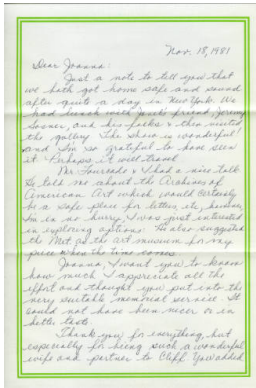 Nov. 18, 1981
Dear Joanna:
Just a note to tell you that
we both got home safe and sound
after quite a day in New York. We
had lunch with friend, Jeremy
and his folks & then visited
the gallery. The show is wonderful!
and I'm so grateful to have seen
it. Perhaps it will travel.
Mr. Fourcade & I had a nice talk.
He told me about the Archives of
American Art which would certainly
be a safe place for letters, etc., however,
I'm in no hurry, I was just interested
in exploring options. He also suggested
the Met. as the art museum for my
piece when the time comes.
Joanna, I want you to know
how much I appreciate all the
effort and thought you put into the
very suitable memorial service. It
could not have been nicer or in
better taste.
Thank you for everything, but
especially for being such a wonderful
wife and partner to Cliff. You added